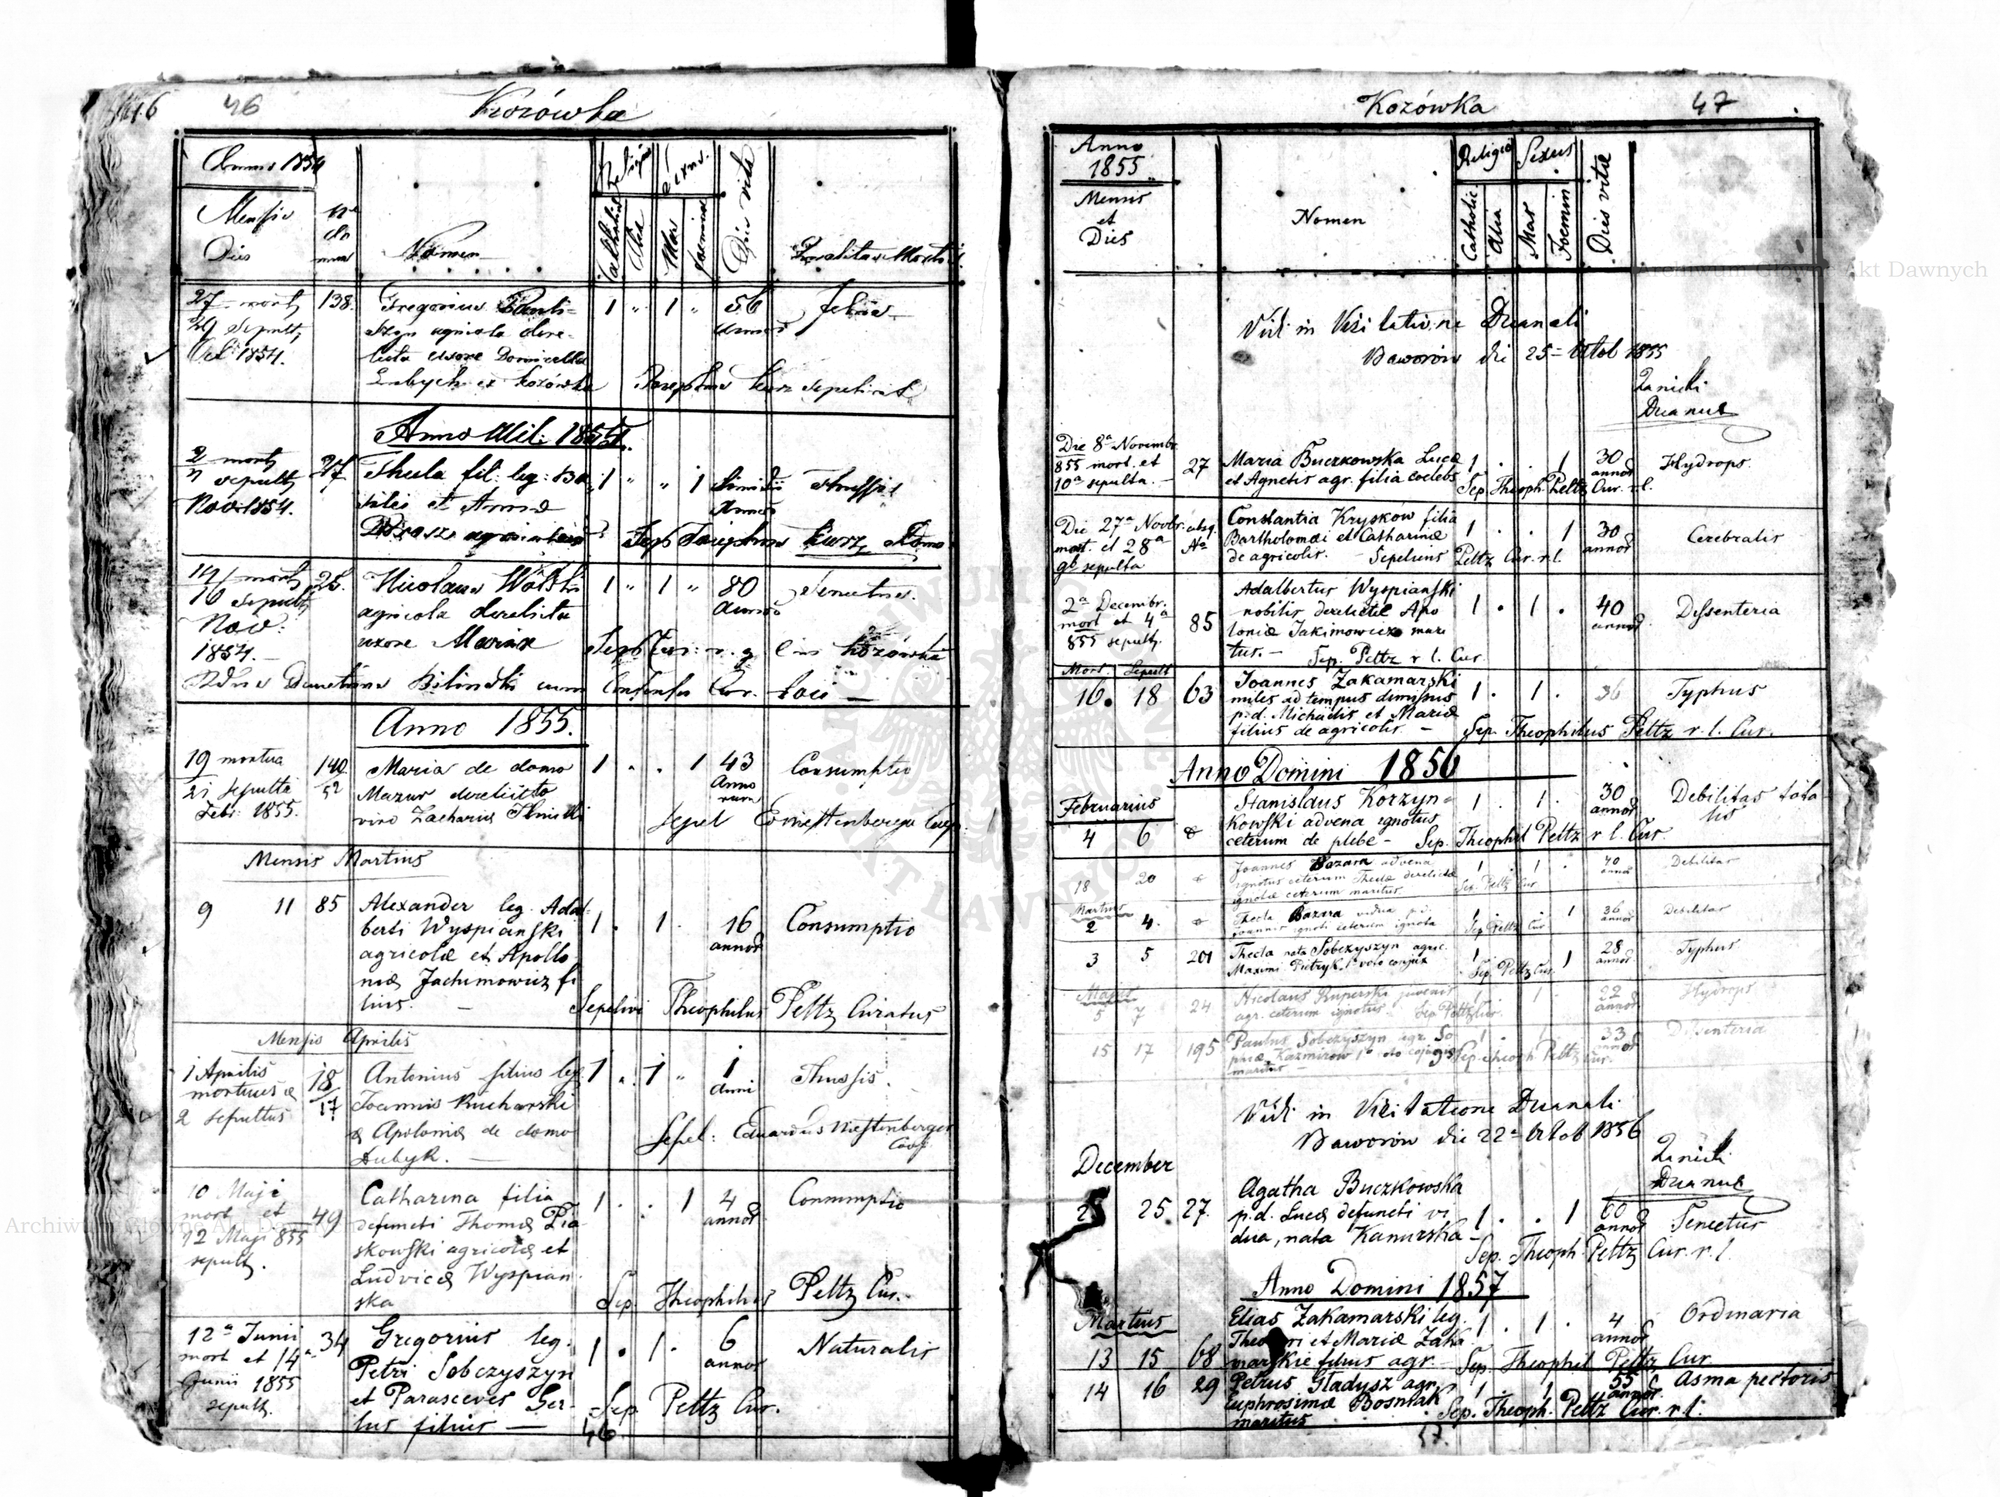 46 46 Kozówka
Anno 1854
Mensis
Dies
Nro
do
mus
Nomen
Religio
Sexus
Catholic
Alia
Mar
Foemin
Dies vitae
Qualitas Morti
27 mort
29 sepult
Oct. 1854.
138.
Gregorius
agricola dere-
licta uxore
ex Kozówka
1 " 1 "
56
annor
Febris
Josephus Kurz sepelivit
Anno Mil: 1854.
2 mort
sepult
Nov. 1854.
27
Thecla fil: leg: Ba
silii et Anna
1 " " 1
Anni
Thussis
Sep Josephus Kurz
14 mort
16 sepult
Nov:
1854.
25.
Nicolaus Wolski
agricola derelicta
uxore Maria
1 " 1 "
80
annor
Senectus
Kozówka
Demetrius Bilinski cum Consensu Cur. loci —
Anno 1855.
19 mortua
21 sepulta
Febr: 1855.
140
52
Maria de domo
Mazur derelicto
viro Zacharia
1 . . 1
43
Anno
rum
Consumptio
sepel
Mensis Martius
9 11 85
Alexander leg. Adal-
berti Wyspianski
agricolæ et Apollo
niæ Jachimowicz fi
lius. —
1. 1.
16
annor
Consumptio
Sepelivi Theophilus Peltz Curatus
Mensis Aprilis
1 Aprilis
mortuus &
2 sepultus
18
17
Antonius filius leg
Joannis Kucharski
& Apolonia de domo
Dubyk. —
1 . 1 "
1
anni
Thussis.
Sepel: Eduardus Westenberger
Coop
10 Maji
mort et
12 Maji 855
sepult.
49
Catharina filia
defuncti Thomæ Pia
skowski agricolæ et
Ludvicæ Wyspian
ska
1 . . 1
4
annor
Consumptio
Sep Theophilus Peltz Cur.
12ª Junii
mort et 14ª
Junii 1855
sepult.
34
Gregorius leg.
Petri Sobczyszyn
et Parascevæ Ser-
bus filius —
1 . 1.
6
annor
Naturalis
Sep Peltz Cur.
46
Kozówka 47
Anno
1855
Mensis
et
Dies
Nomen
Religio
Sexus
Catholic
Alia
Mas
Foemin
Dies vitæ
Vidi in Visitatione Decanali
Baworów die 25ª 8tob 1855
Decanus
Die 8ª Novembr
855 mort. et
10ª sepulta. —
27
Maria Buczkowska Lucæ
et Agnetis agr. filia coelebs
1 . . 1
30
annor
Hydrops
Sep. Theoph. Peltz Cur. r.l.
Die 27ª Novbr.
mort. et 28ª
sepulta
absq.
No
Constantia Kryskow filia
Bartholomæi et Catharinæ
de agricolis. — Sepelivit Peltz Cur. r.l.
1 . . 1
30
annor
Cerebralis
2ª Decembr.
mort et 4ª
855 sepult.
85
Adalbertus Wyspianski
nobilis derelictæ Apo
loniæ Jakimowicz mari
tus. — Sep. Peltz r. l. Cur
1 . 1 .
40
annor
Dissenteria
Mort. Sepult
16. 18 63
Joannes Zakamarski
miles ad tempus dimissus
p.d. Michaelis et Mariæ
filius de agricolis. —
1 . 1 .
36
Typhus
Sep. Theophilus Peltz r. l. Cur.
Anno Domini 1856
Februarius
4 6
Stanislaus Korzyn-
kowski advena ignotus
ceterum de plebe — Sep. Theophil Peltz r l. Cur
1 . 1 .
30
annor
Debilitas tota-
lis
18 20
Joannes Bazara advena
ignotus ceterum Theclæ derelictæ
ignotæ ceterum maritus
1 . 1 .
40
anno
Debilitas
Sep. Peltz Cur
Martius
2 4.
Thecla Bazara vidua p.d.
Joannis ignoti ceterum ignota
1 . . 1
36
annor
Debilitas
Sep Peltz Cur
3 5 201
Thecla nata Sobczyszyn agric.
Maximi Pietryk 1º voto conjux
1 . . 1
28
annor
Typhus
Sep. Peltz Cur.
5 7 24
Nicolaus Kuperski juvenis
agr. ceterum ignotus — Sep Peltz Cur.
22
annor
Hydrops
15 17 195
Paulus Sobczyszyn agr. So
phiæ Kazmirow 1º voto conjugis
maritus —
33
annor
Dissenteria
Sep Theoph Peltz Cur.
Vidi in Visitatione Decanali
Baworów die 22ª 8tob 1856
Decanus
December
25 27.
Agatha Buczkowska
p.d. Lucæ defuncti vi
dua, nata Kanurska —
1 . . 1
60
annor
Senectus
Sep. Theoph. Peltz Cur. r. l.
Anno Domini 1857
Martius
13 15 68
Elias Zakamarski leg.
Theodori et Mariæ Zaka
marskie filius agr.
1 . 1 .
4
annor
Ordinaria
Sep. Theophil Peltz Cur
14 16 29
Petrus Gładysz agr.
Euphrosinæ Bosniak
maritus
1 . 1 .
55
annor.
Asma pectoris
Sep. Theoph. Peltz Cur. r. l.
47.
Archiwum Główne Akt Dawnych
Archiwum Główne Akt Dawnych